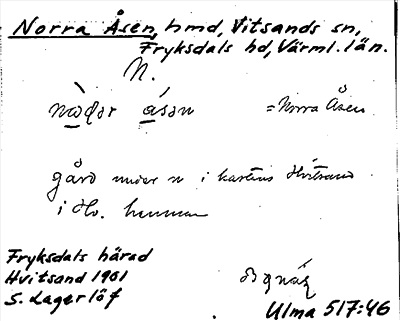 Norra Åsen, hmd, Vitsands sn,
Fryksdals hd, Värml. län.
N.
= Norra Åsen
gård under n i kartans Hvitsand
i Hv. hemman
Fryksdals härad
Hvitsand 1901
S. Lagerlöf
Ulma 517:46